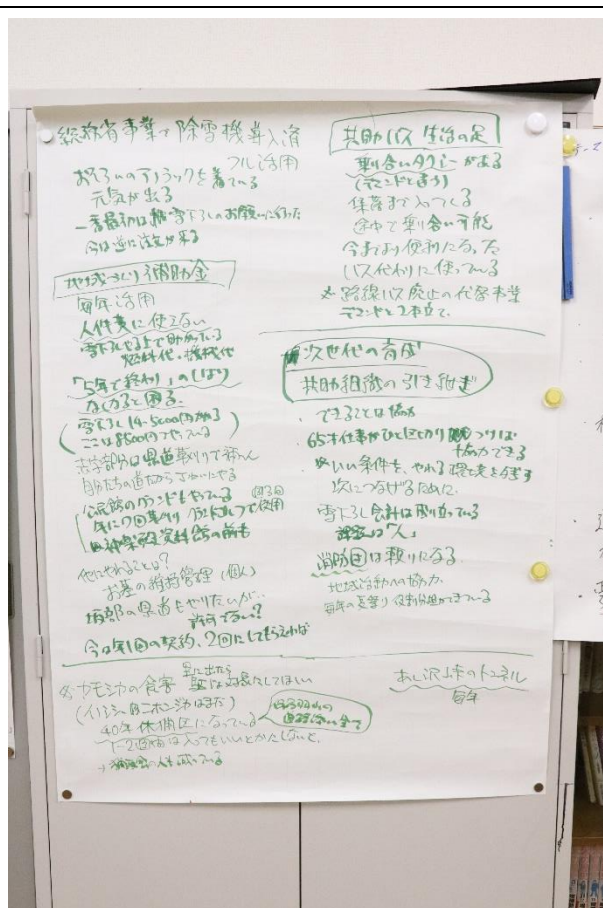 総務省事業で除雪機導入済
フル活用
おそろいのアノラックを着ている
元気が出る
一番最初は 雪下しのお願いに行った
今は逆に注文が来る
地域づくり補助金
毎年活用
人件費に使えない
雪下しをやる上で助かっている
燃料代・機械代
「5年で終わり」のしばり
なくなると困る。
雪下し14-5000円かかる
ここは8500円でやっている
共学部分は県道草刈りで
自分たちの道だからきれいにやる
公民館のグランドもやっている
年に9回草刈り グランドゴルフで使用
神楽 資料館の前も
他にやれることは?
お墓の維持管理(個人)
坂部の県道もやりたいが、
許可でない?
今は年1回の契約、2回にしてもらえれば
共助バス 生活の足
乗り合いタクシーがある
(デマンドと違う)
集落まで入ってくる
途中で乗り合い可能
今までより便利になった
バス代わりに使っている
※路線バス廃止の代替事業
デマンドと2本立て。
次世代の育成
共助組織の引き継ぎ
・できることは協力
65才仕事がひと区切り つけば
協力できる
※いい条件を、やれる環境を残す
次につなげるために。
雪下し会計は成り立っている
課題は「人」
消防団は頼りになる
地域活動への協力
毎年の夏祭り 役割分担ができている
※カモシカの食害
里に出たら
対象にしてほしい
(イノシシ ニホンジカはまだ)
40年休猟区になっている
1-2週間は入ってもいいとかにしないと。
→猟友会の人も減っている
トンネル
毎年